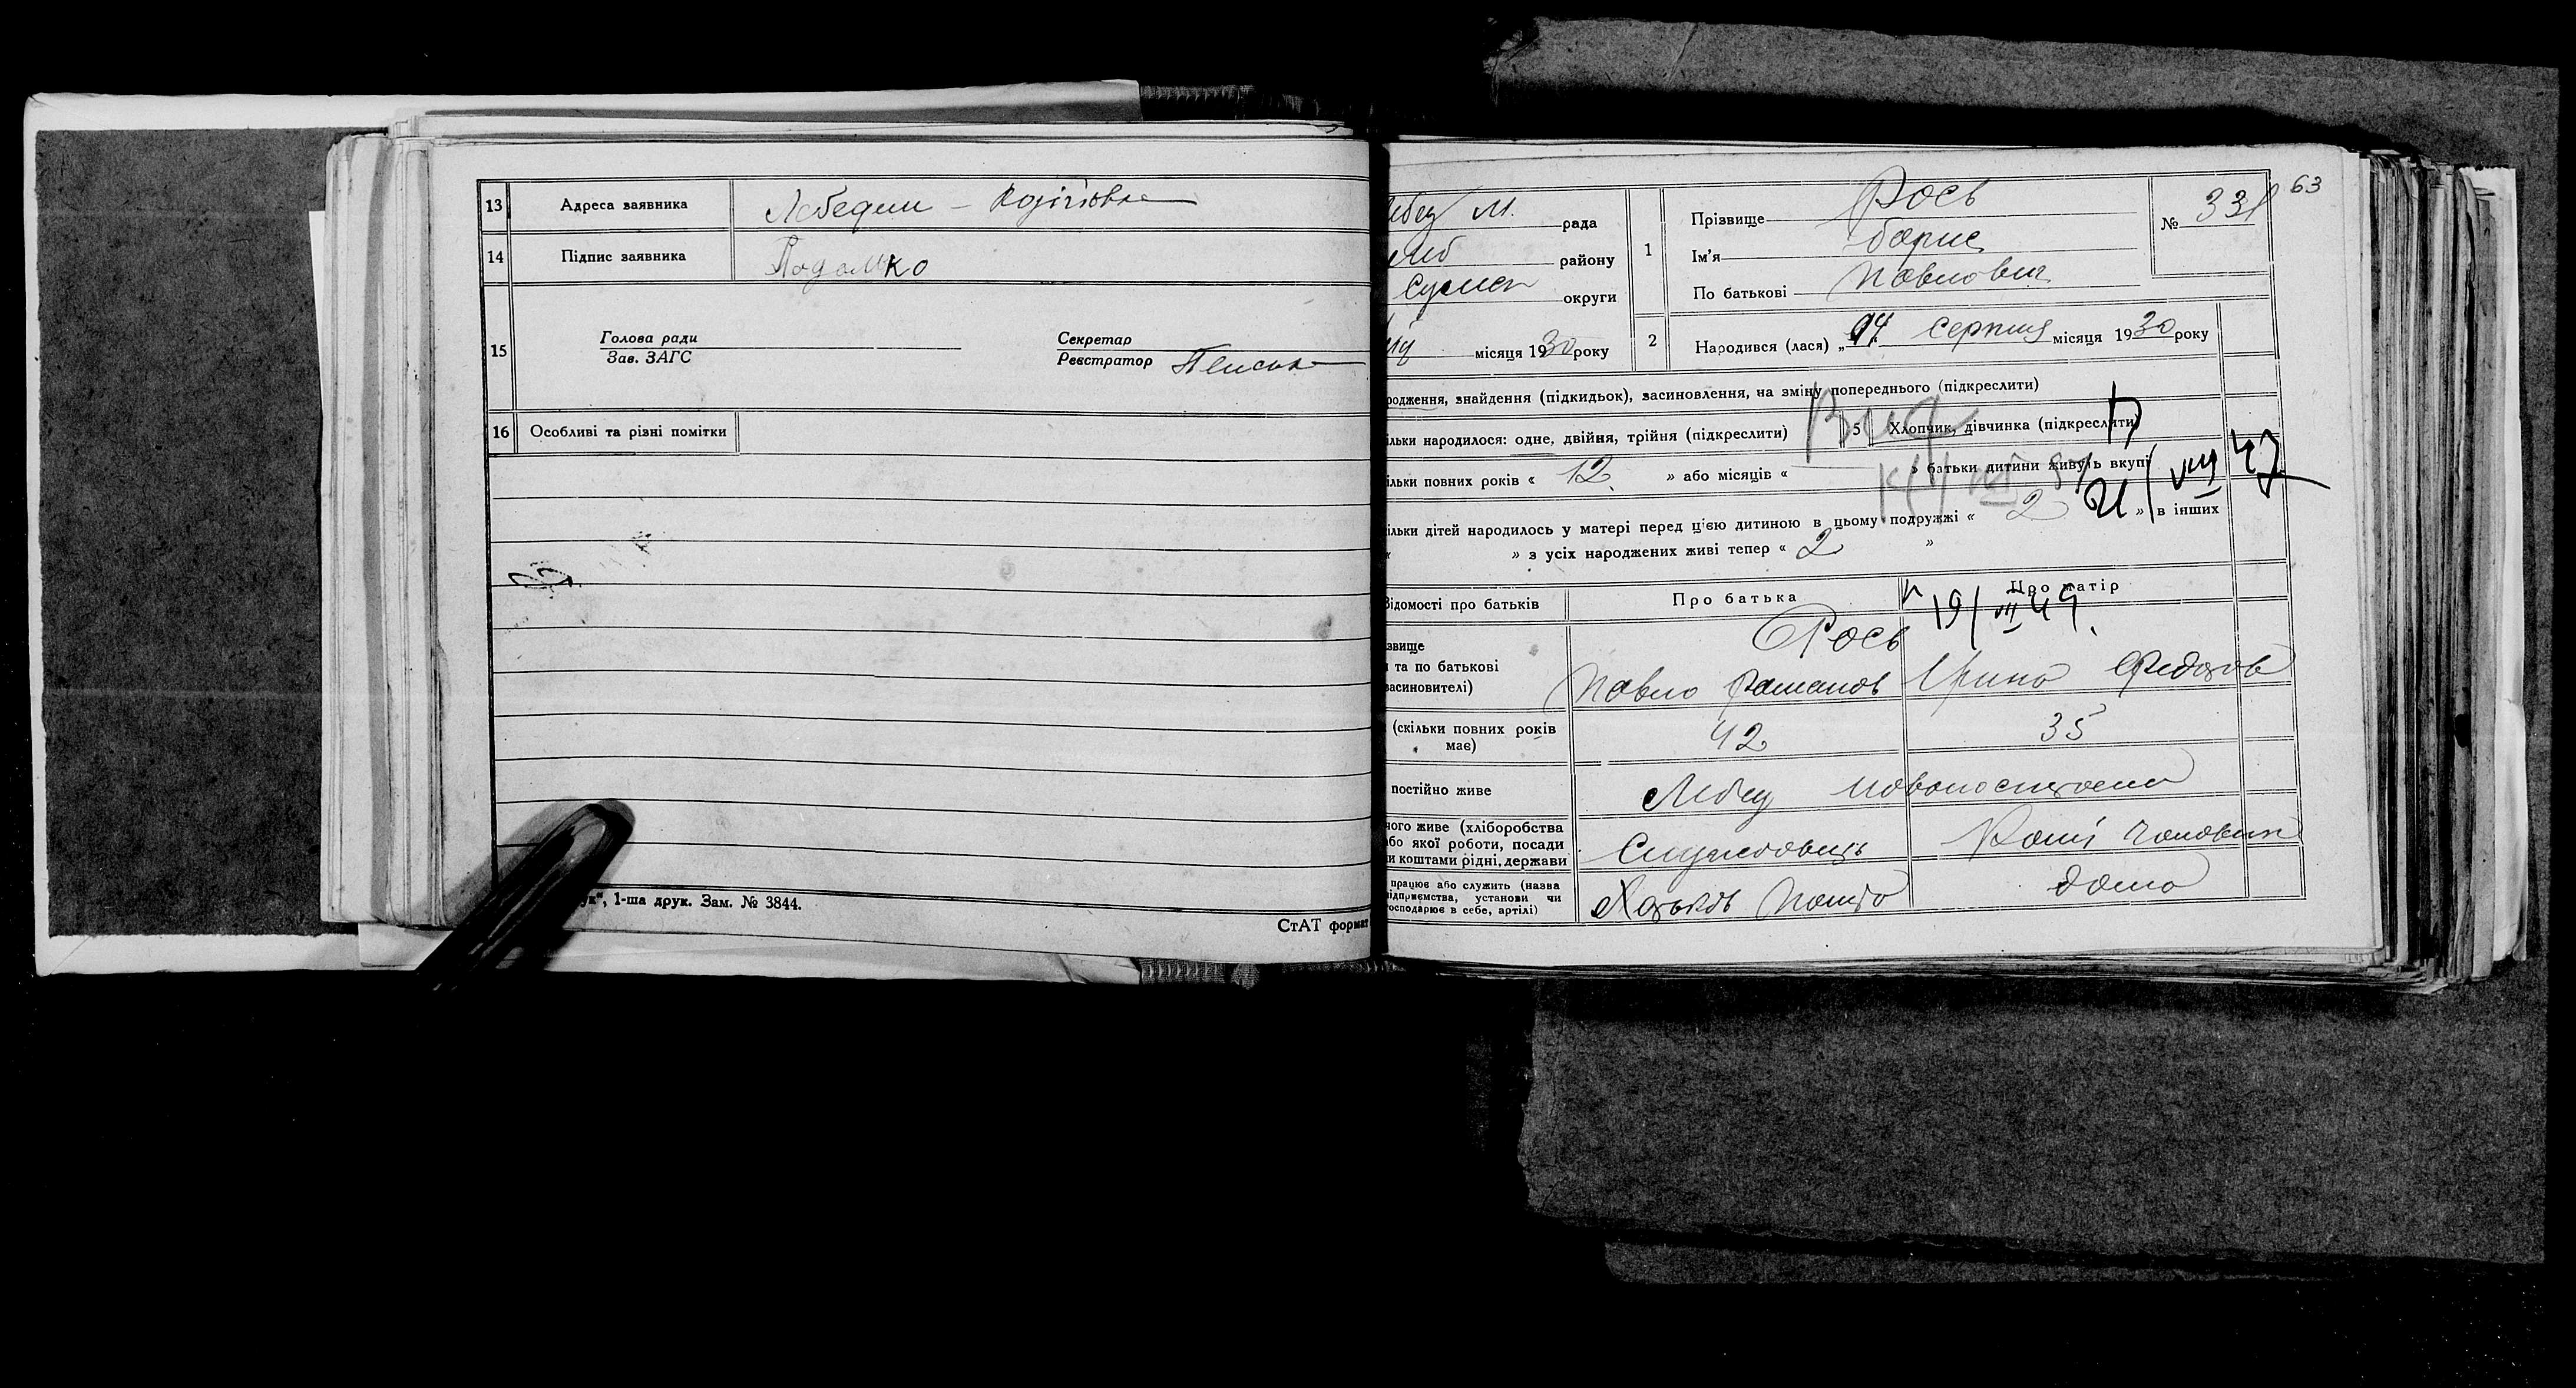 13 Адреса заявника Лебедин –
14 Підпис заявника Подолько
15 Голова ради Секретар
Зав. ЗАГС Реєстратор
16 Особливі та різні помітки
ук", 1-ша друк. Зам. № 3844.
СтАТ формат
63
М. рада
району
Сумськ округи
місяця 1930 року
1 Прізвище Рось
Ім'я Борис
По батькові Павлович
№ 331
2 Народився (лася) „ серпня місяця 1930 року
родження, знайдення (підкидьок), засиновлення, на зміну попереднього (підкреслити)
ільки народилося: одне, двійня, трійня (підкреслити) 5 Хлопчик, дівчинка (підкреслити)
ільки повних років « 12 » або місяців « » батьки дитини живуть вкупі
21/VIII 47
ільки дітей народилось у матері перед цією дитиною в цьому подружжі « 2 » в інших
« » з усіх народжених живі тепер « 2 »
Відомості про батьків Про батька Про матір
19/VII 49
звище Рось
та по батькові
засиновителі) Павло Романов Ірина Федоров
(скільки повних років
має) 42 35
постійно живе Лебед
чого живе (хліборобства
або якої роботи, посади
и коштами рідні, держави Службовець
працює або служить (назва
підприємства, установи чи
господарює в себе, артілі) Харьков Пошта дома